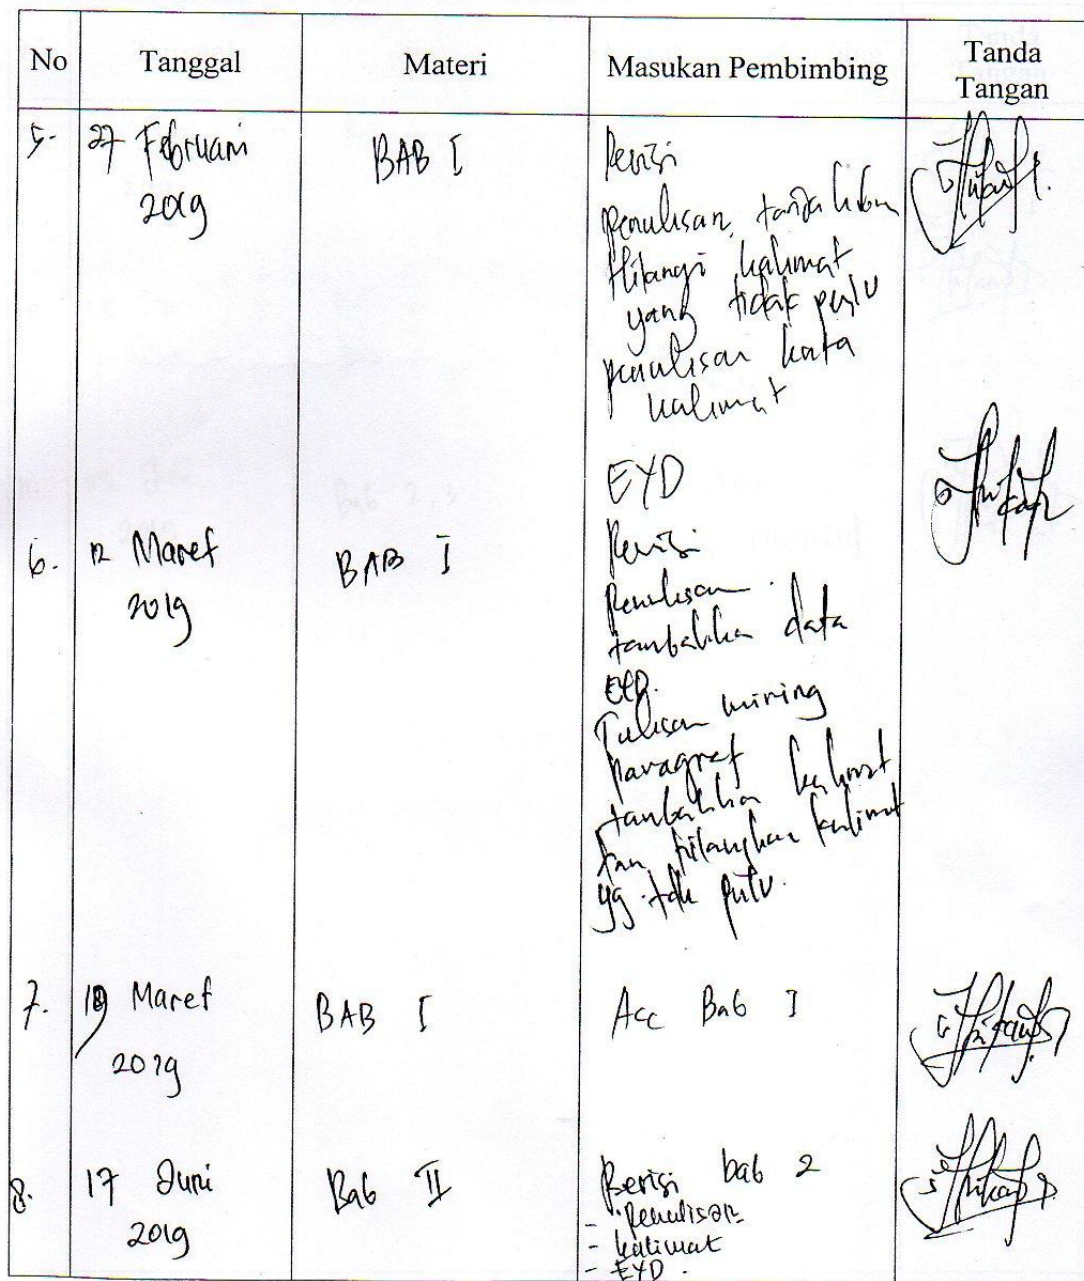 No Tanggal Materi Masukan Pembimbing Tanda Tangan
5. 27 Februari 2019 BAB I Revisi
penulisan, tanda hubung
Hilangi kalimat
yang tidak perlu
penulisan kata
kalimat
EYD
6. 12 Maret 2019 BAB I Revisi
Penulisan
tambahkan data
EYD.
Tulisan miring
paragraf
tambahkan kalimat
dan hilangkan kalimat
yg tdk perlu.
7. Maret 2019 BAB I Acc Bab I
8. 17 Juni 2019 Bab II Revisi bab 2
- Penulisan
- kalimat
- EYD.